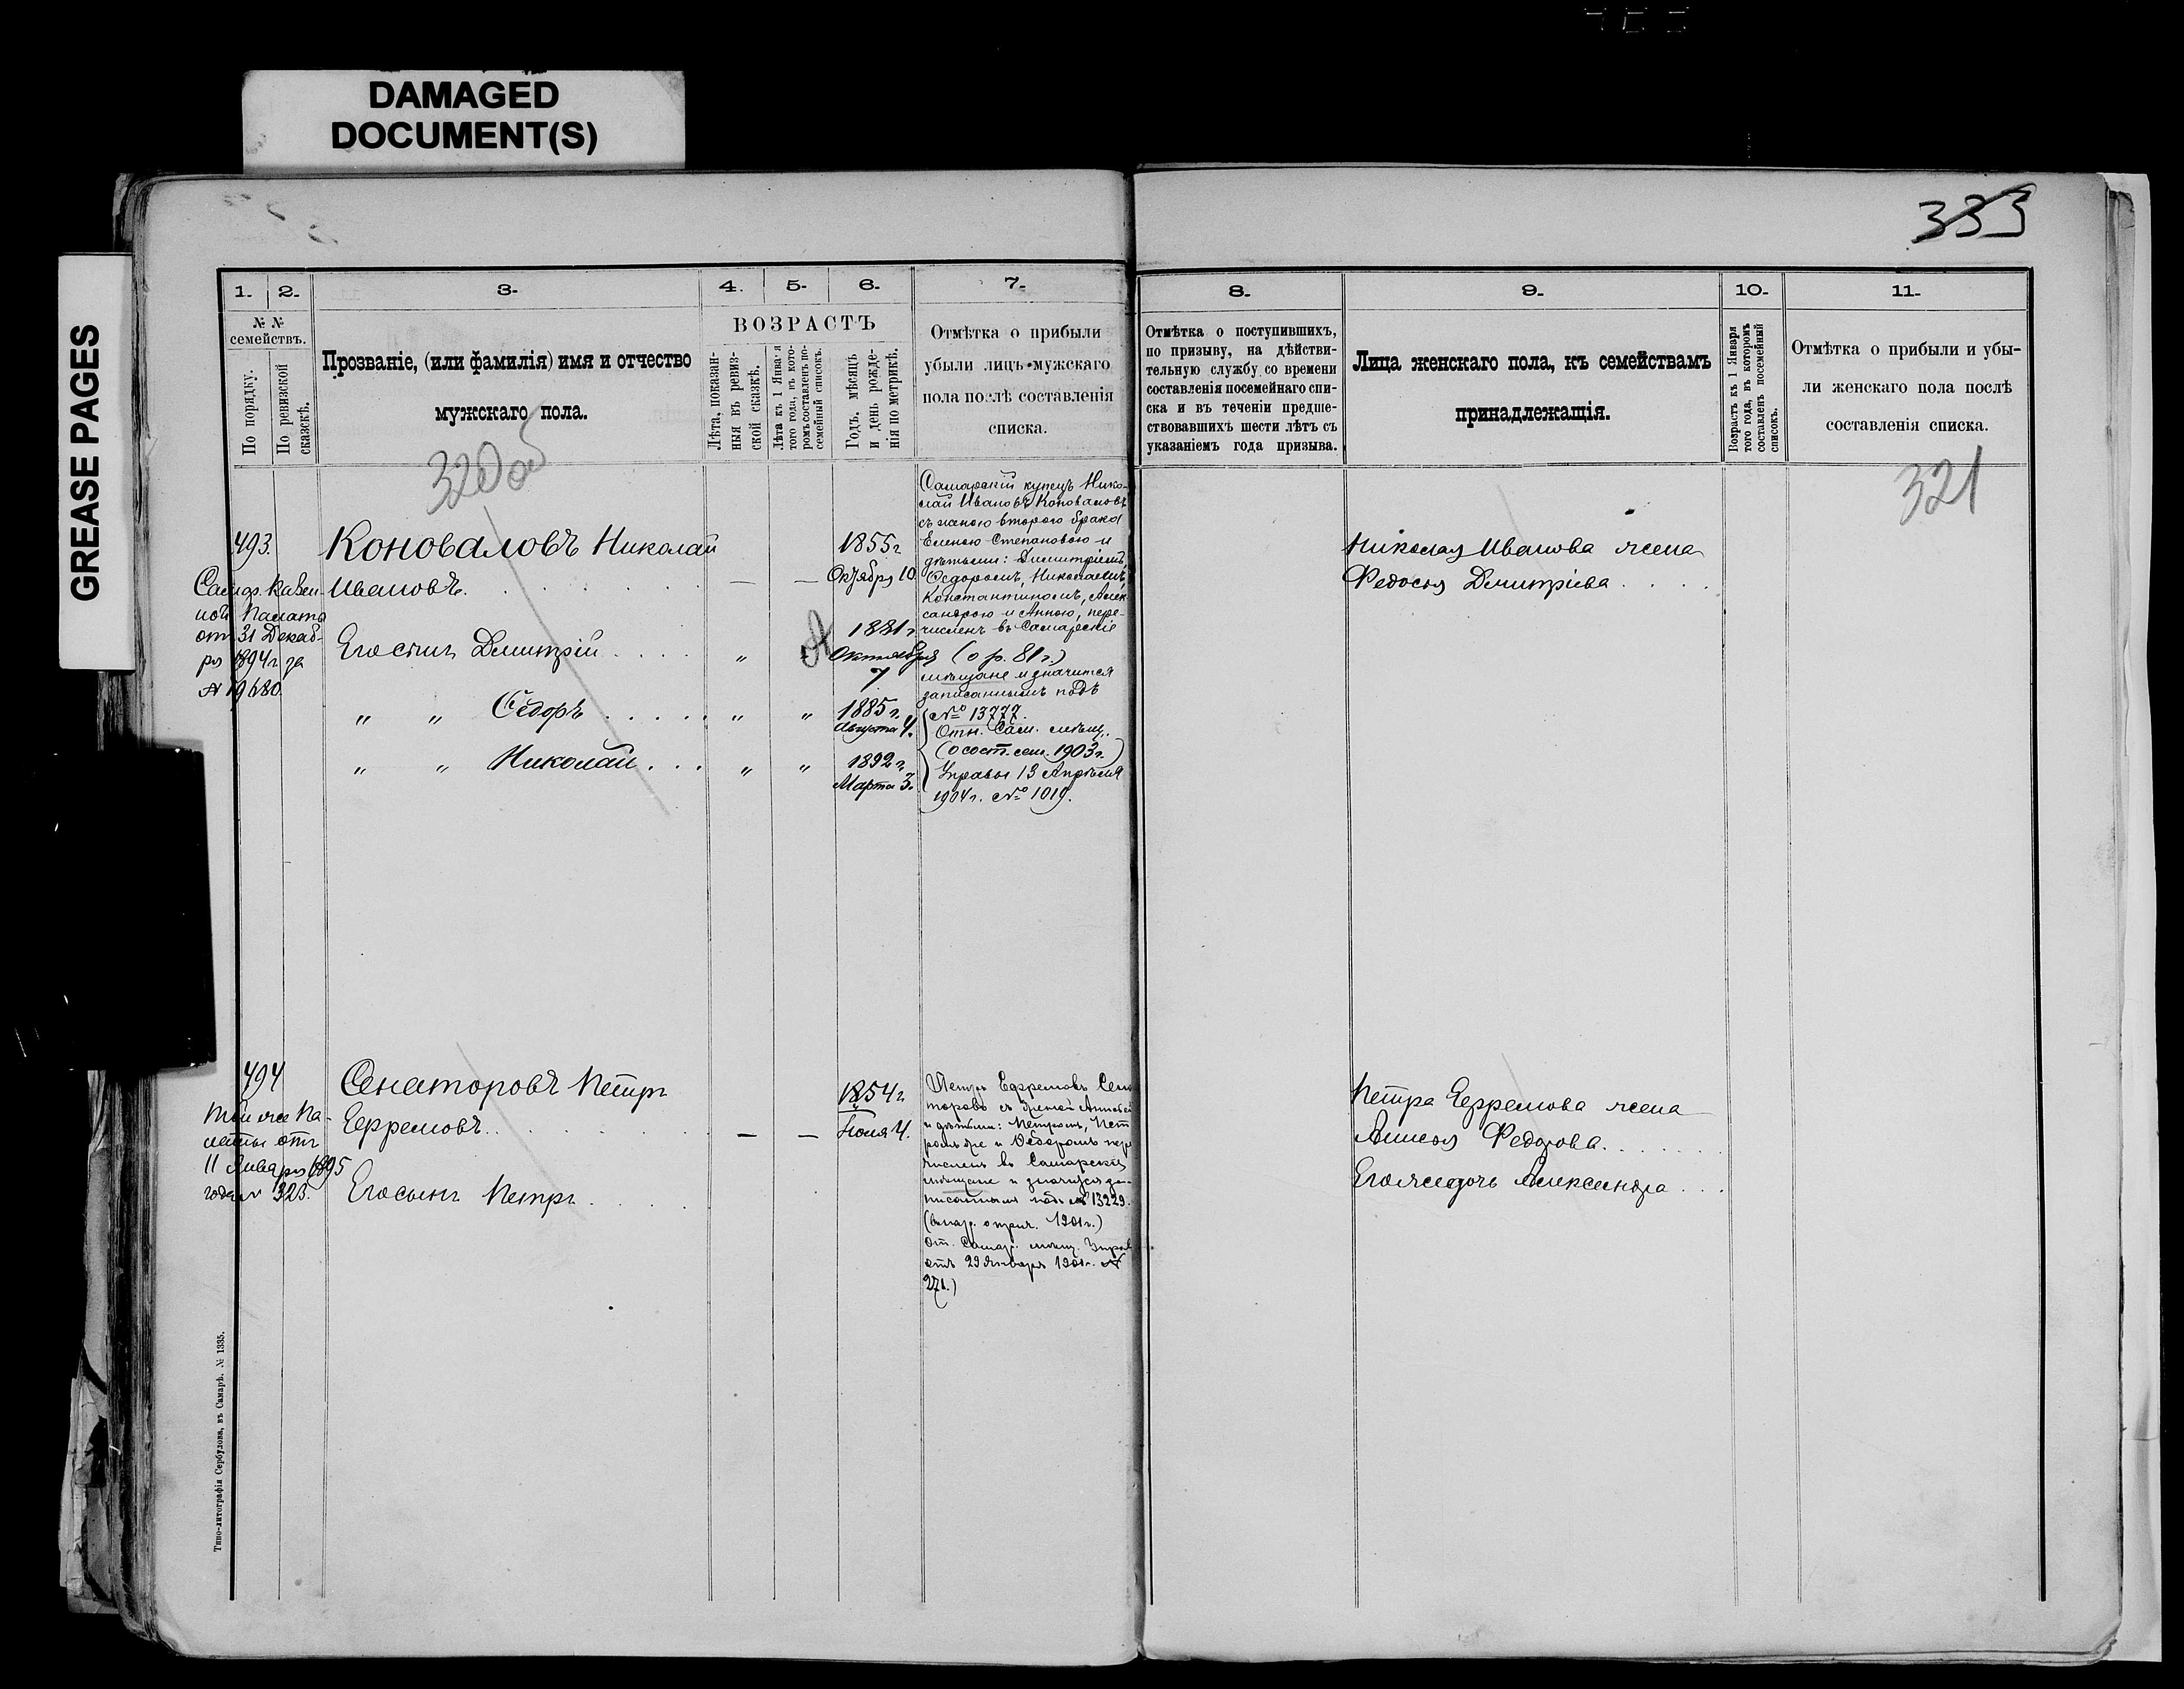 DAMAGED
DOCUMENT(S)
GREASE PAGES
333
1. 2. 3. 4. 5. 6. 7.
№ №
семействъ.
По порядку.
По ревизской
сказкѣ.
Прозваніе, (или фамилія) имя и отчество
мужскаго пола.
ВОЗРАСТЪ
Лѣта, показан-
ныя въ ревиз-
ской сказкѣ.
Лѣта къ 1 Января
того года, въ кото-
ромъ составленъ по-
семейный списокъ.
Годъ, мѣсяцъ
и день рожде-
нія по метрикѣ.
Отмѣтка о прибыли
убыли лицъ мужскаго
пола послѣ составленія
списка.
320
493.
Самар. Казен-
ной Палаты
отъ 31 Декаб-
ря 1894 г за
№ 19680.
Коноваловъ Николай
Ивановъ.
1855 г
Октября 10.
Его сынъ Дмитрій
1881 г
Октября
7
" " Ѳедоръ " "
1885 г.
Августа 4.
" " Николай " "
1892 г.
Марта 3.
Самарскій купецъ Нико-
лай Ивановъ Коноваловъ
съ женою второго брака
Еленою Степановою и
дѣтьми: Димитріемъ,
Ѳедоромъ, Николаемъ,
Константиномъ, Алек-
сандрою и Анною, пере-
численъ въ Самарскіе
(о р. 81 г.)
мѣщане и значится
записаннымъ подъ
№ 13777.
Отн. Сам. мѣщ.
(о сост. сем. 1903 г.)
Управы 13 Апрѣля
1904 г. № 1019.
494
Той же Па-
латы отъ
11 Января 1895
года № 323.
Сенаторовъ Петръ
Ефремовъ.
1854 г
Іюля 4.
Его сынъ Петръ
Петръ Ефремовъ Сена
торовъ съ женой
и дѣтьми: Петромъ, Пет
ромъ же и Ѳедоромъ пере
численъ въ Самарскіе
мѣщане и значится за-
писаннымъ подъ № 13229.
1901 г.)
От. Самар. мѣщ. Управ
отъ 29 Января 1901 г. №
271.)
Типо-литографія Сербулова, въ Самарѣ. № 1335.
8. 9. 10. 11.
Отмѣтка о поступившихъ,
по призыву, на дѣйстви-
тельную службу со времени
составленія посемейнаго спи-
ска и въ теченіи предше-
ствовавшихъ шести лѣтъ съ
указаніемъ года призыва.
Лица женскаго пола, къ семействамъ
принадлежащія.
Возрастъ къ 1 Января
того года, въ которомъ
составленъ посемейный
списокъ.
Отмѣтка о прибыли и убы-
ли женскаго пола послѣ
составленія списка.
321
Николая Иванова жена
Федосья Дмитріева
Петра Ефремова жена
Анисья Федорова
Его же дочь Александра